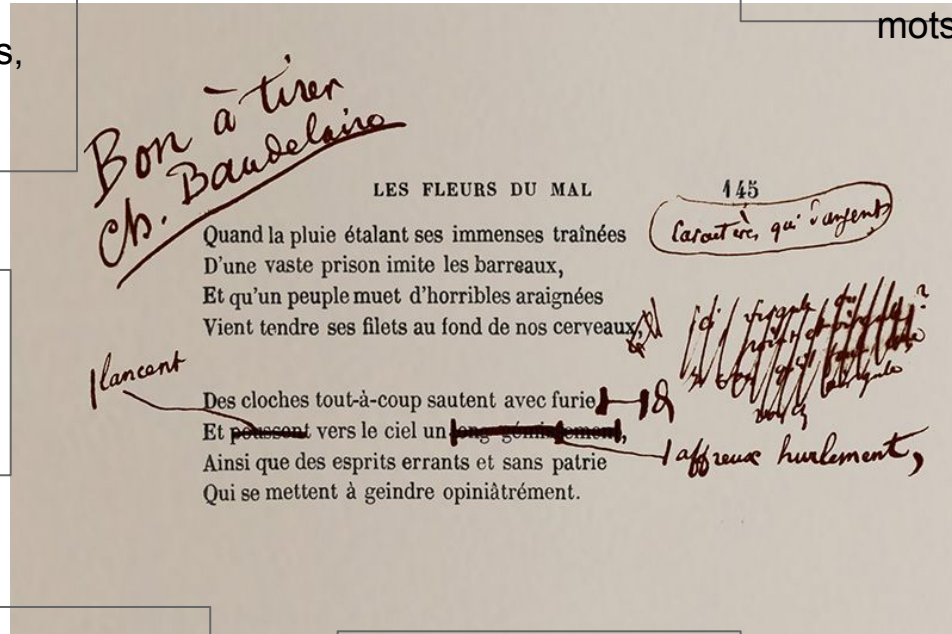 s,
mots
Bon à tirer
Ch. Baudelaire
LES FLEURS DU MAL 145
Quand la pluie étalant ses immenses traînées
D'une vaste prison imite les barreaux,
Et qu'un peuple muet d'horribles araignées
Vient tendre ses filets au fond de nos cerveaux,
lancent
Des cloches tout-à-coup sautent avec furie
Et poussent vers le ciel un long gémissement,
affreux hurlement,
Ainsi que des esprits errants et sans patrie
Qui se mettent à geindre opiniâtrément.